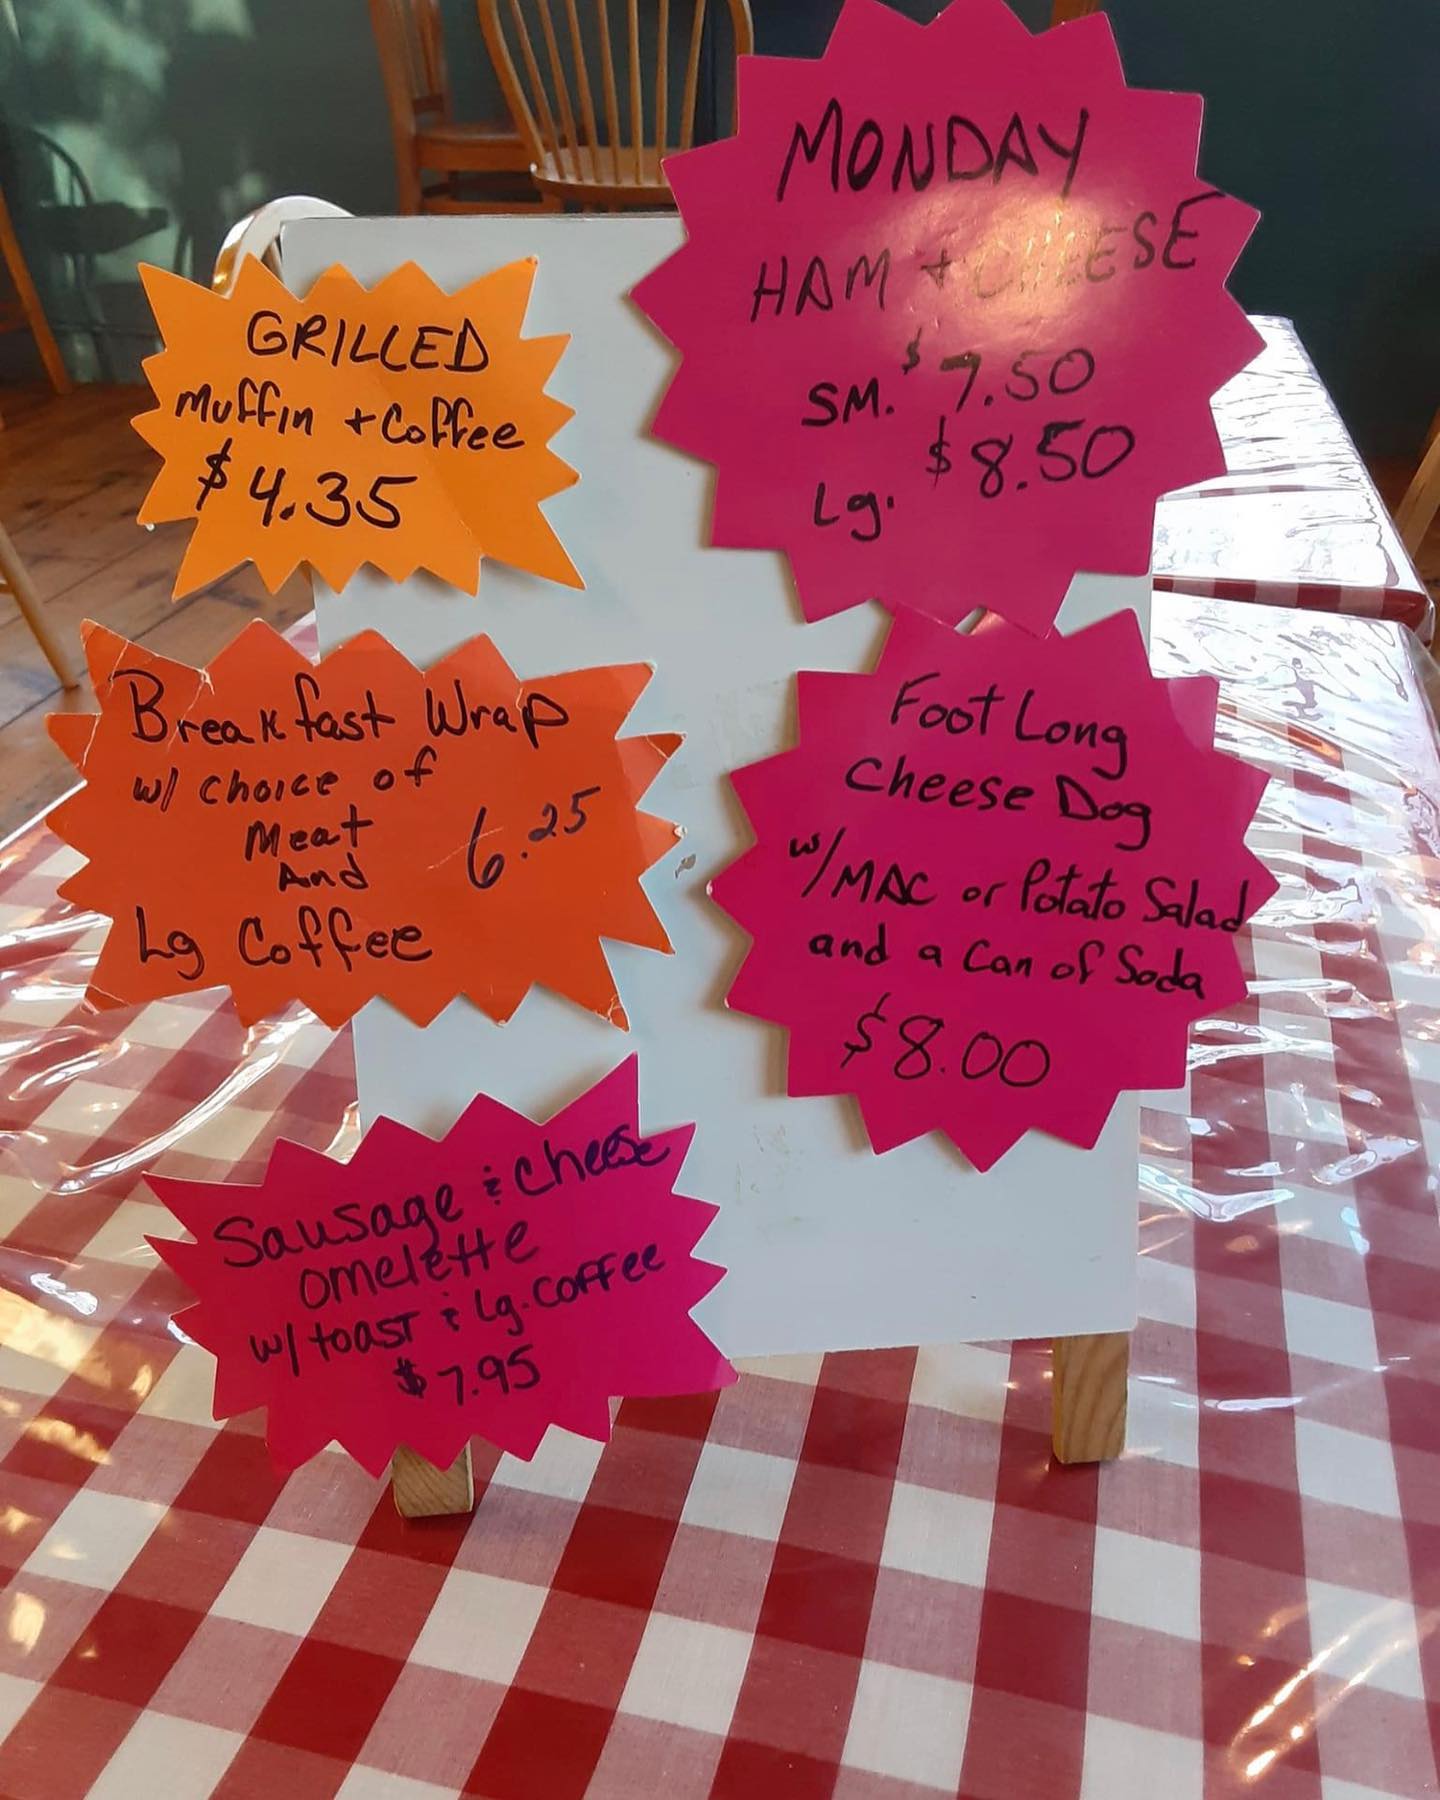 MONDAY
HAM + CHEESE
SM. $7.50
Lg. $8.50
GRILLED
Muffin + Coffee
$4.35
Breakfast Wrap
w/ choice of
Meat
And
6.25
Lg Coffee
Foot Long
Cheese Dog
w/MAC or Potato Salad
and a Can of Soda
$8.00
Sausage & Cheese
omelette
w/ toast & Lg. Coffee
$7.95